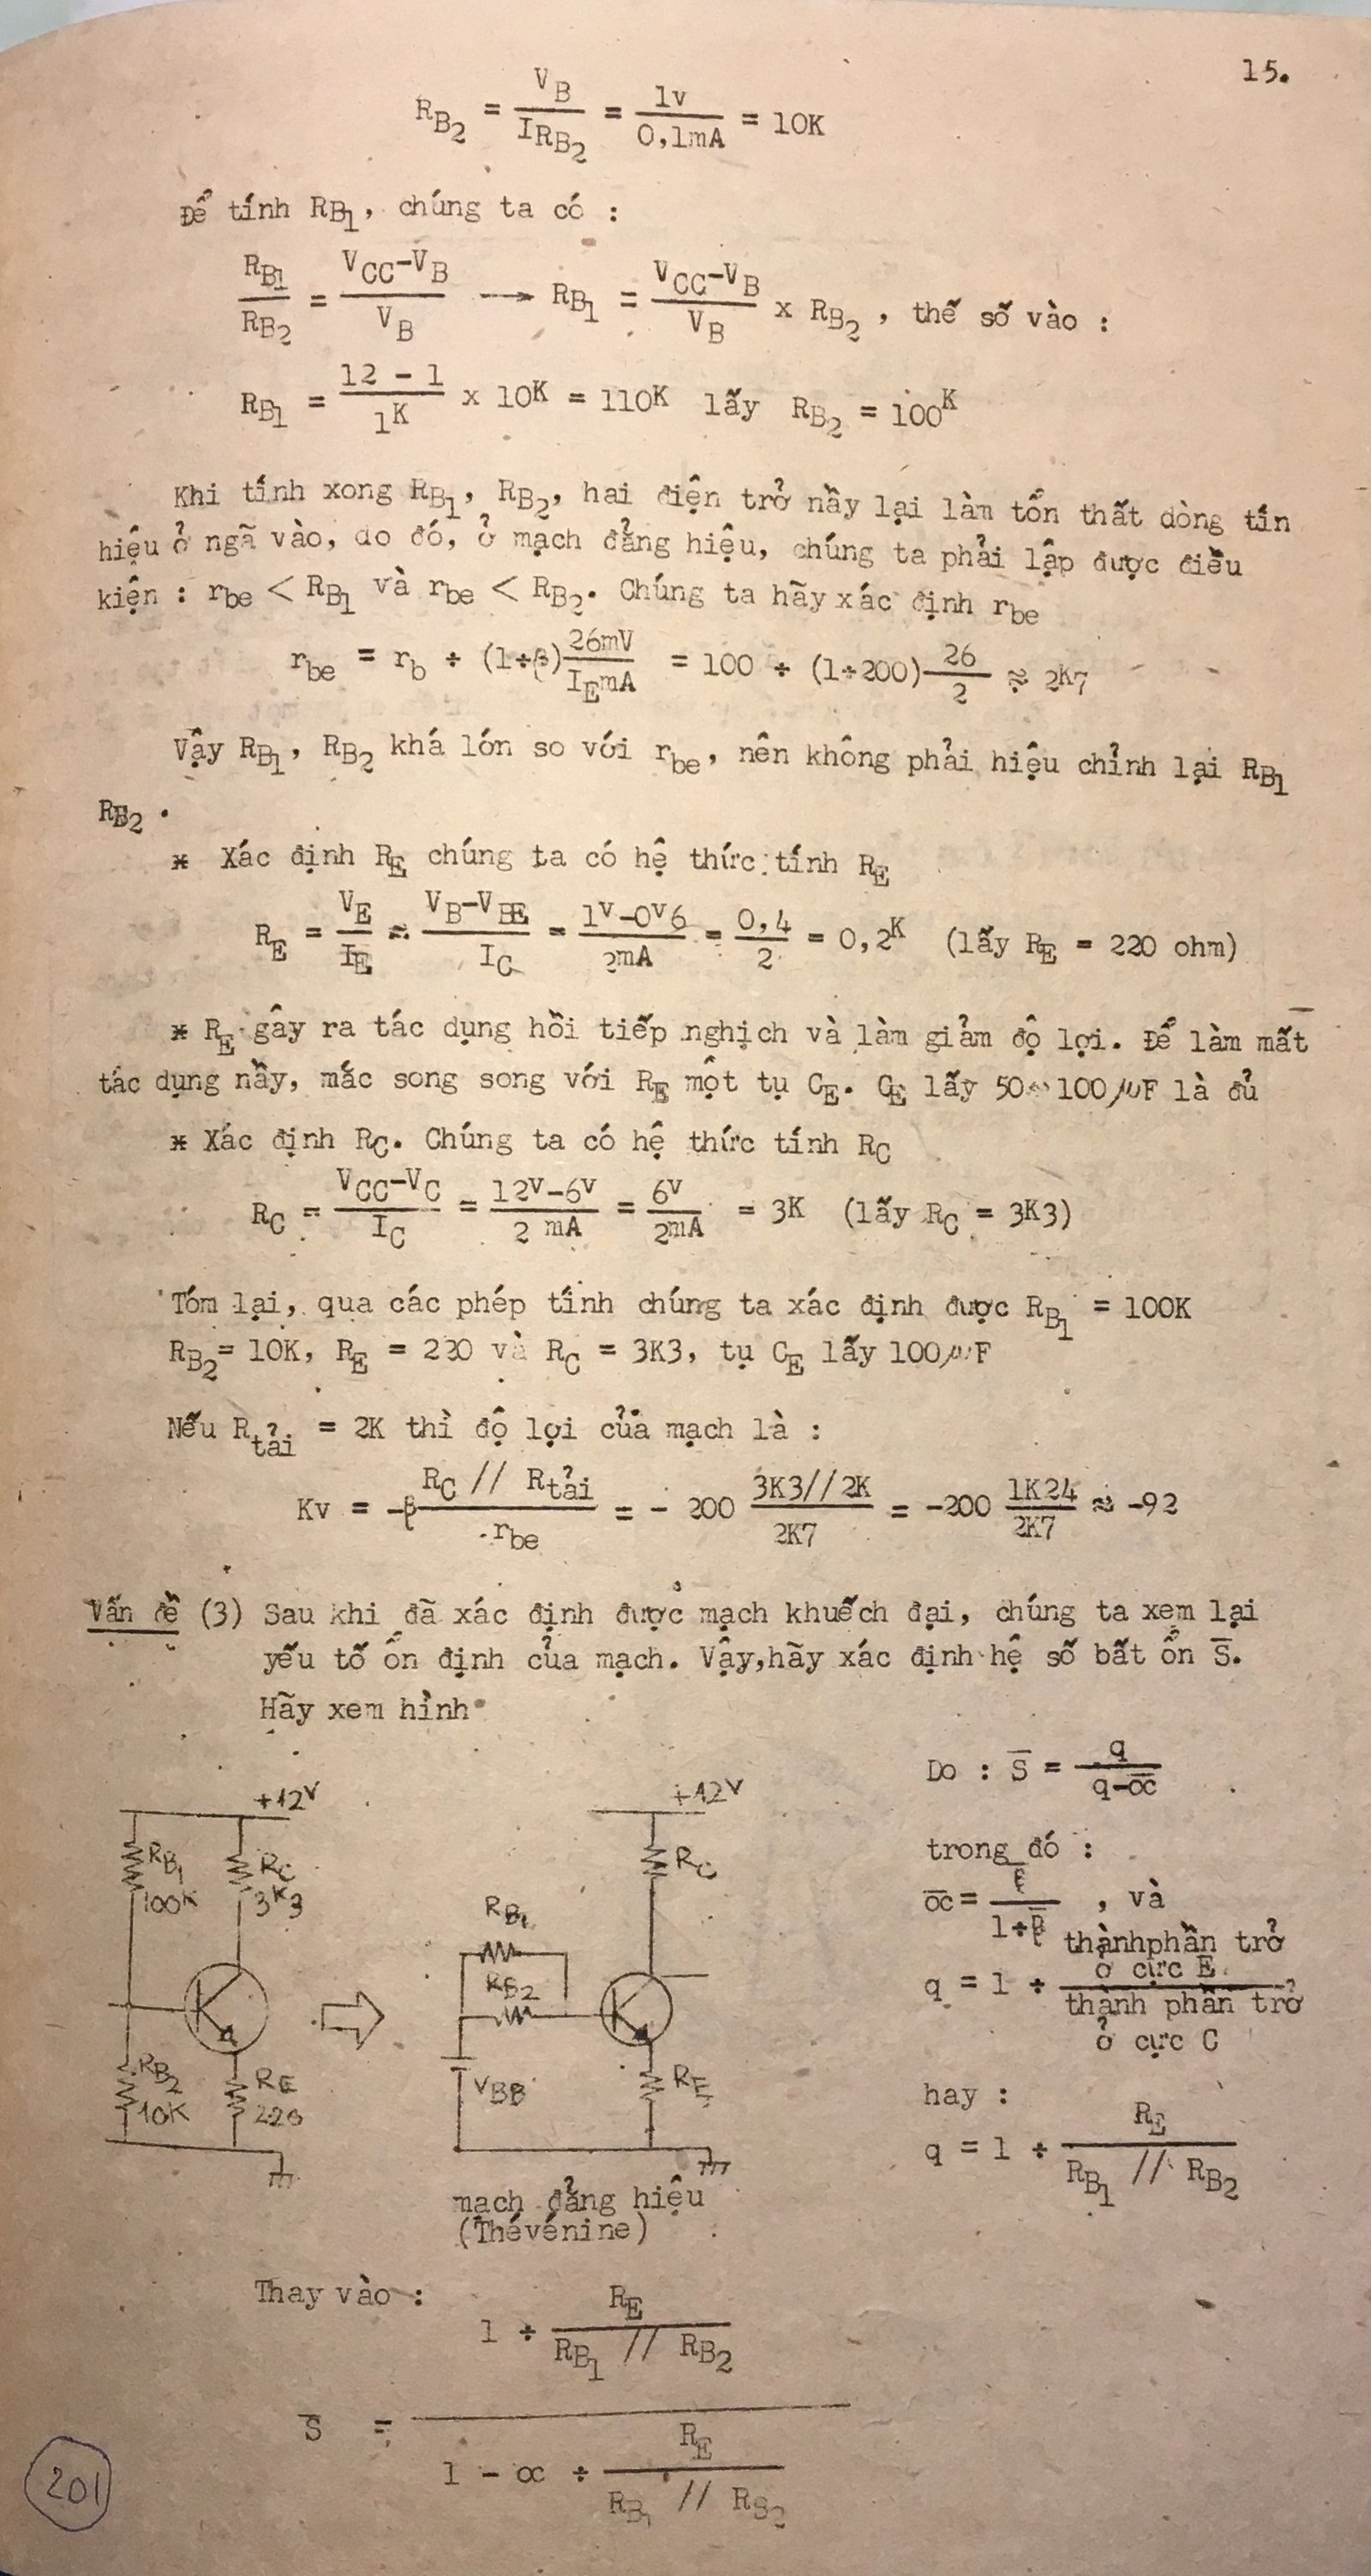 15.
R_B2 = V_B / I_RB2 = 1v / 0,1mA = 10K
Để tính RB1, chúng ta có :
RB1 / RB2 = (VCC-VB) / VB → RB1 = (VCC-VB) / VB x RB2 , thế số vào :
RB1 = (12 - 1) / 1K x 10K = 110K lấy RB2 = 100K
Khi tính xong RB1, RB2, hai điện trở nầy lại làm tổn thất dòng tín
hiệu ở ngã vào, do đó, ở mạch đẳng hiệu, chúng ta phải lập được điều
kiện : rbe < RB1 và rbe < RB2. Chúng ta hãy xác định rbe
rbe = rb + (1+β) 26mV / IEmA = 100 + (1+200) 26 / 2 ≈ 2K7
Vậy RB1, RB2 khá lớn so với rbe, nên không phải hiệu chỉnh lại RB1
RB2 .
* Xác định RE chúng ta có hệ thức tính RE
RE = VE / IE ≈ (VB-VBE) / IC = (1V-0V6) / 2mA = 0,4 / 2 = 0,2K (lấy RE = 220 ohm)
* RE gây ra tác dụng hồi tiếp nghịch và làm giảm độ lợi. Để làm mất
tác dụng nầy, mắc song song với RE một tụ CE. CE lấy 50~100µF là đủ
* Xác định RC. Chúng ta có hệ thức tính RC
RC = (VCC-VC) / IC = (12V-6V) / 2 mA = 6V / 2mA = 3K (lấy RC = 3K3)
Tóm lại, qua các phép tính chúng ta xác định được RB1 = 100K
RB2= 10K, RE = 220 và RC = 3K3, tụ CE lấy 100µF
Nếu Rtải = 2K thì độ lợi của mạch là :
Kv = -β (RC // Rtải) / rbe = - 200 (3K3//2K) / 2K7 = -200 1K24 / 2K7 ≈ -92
Vấn đề (3) Sau khi đã xác định được mạch khuếch đại, chúng ta xem lại
yếu tố ổn định của mạch. Vậy,hãy xác định hệ số bất ổn S̅.
Hãy xem hình
+12V
RB1
100K
RC
3K3
RB2
10K
RE
220
+12V
RC
RB1
RB2
VBB
RE
mạch đẳng hiệu
(Thévénine)
Do : S̅ = q / (q-α̅)
trong đó :
α̅ = β̅ / (1+β̅) , và
q = 1 + thành phần trở ở cực E / thành phần trở ở cực C
hay :
q = 1 + RE / (RB1 // RB2)
Thay vào :
S̅ = (1 + RE / (RB1 // RB2)) / (1 - α + RE / (RB1 // RB2))
201